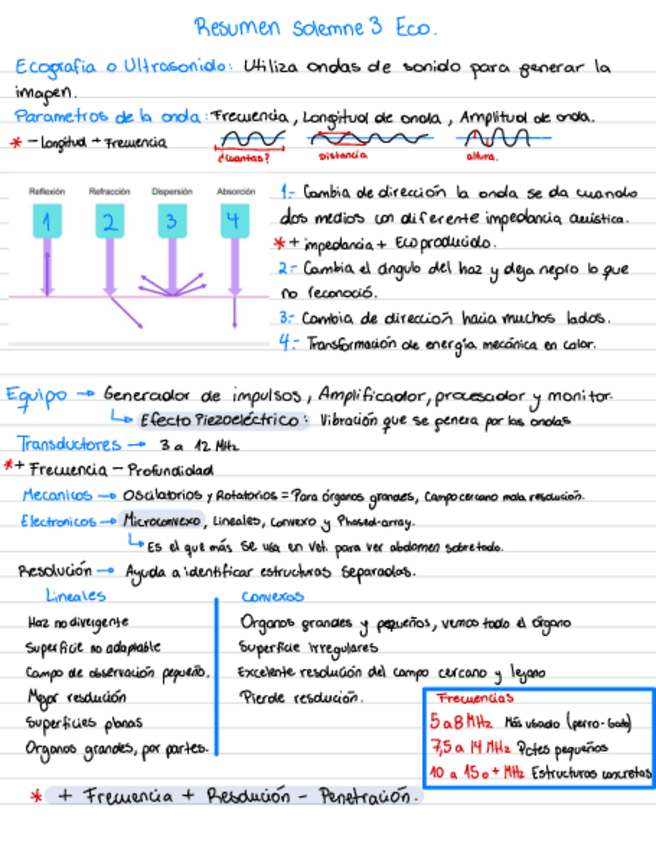 Resumen Solemne 3 Eco.
Ecografia o Ultrasonido: Utiliza ondas de sonido para generar la
imagen.
Parametros de la onda: Frecuencia, Longitud de onda, Amplitud de onda.
* - Longitud + Frecuencia
¿Cuantas? Distancia altura.
Reflexión Refracción Dispersión Absorción
1 2 3 4
1.- Cambia de dirección la onda se da cuando
dos medios con diferente impedancia acústica.
* + impedancia + Eco producido.
2.- Cambia el angulo del haz y deja negro lo que
no reconoció.
3.- Cambia de dirección hacia muchos lados.
4.- Transformación de energía mecánica en calor.
Equipo → Generador de impulsos, Amplificador, procesador y monitor.
Efecto Piezoeléctrico: Vibración que se genera por las ondas
Transductores → 3 a 12 MHz
* + Frecuencia - Profundidad
Mecanicos → Oscilatorios y Rotatorios = Para órganos grandes, Campo cercano mala resolución.
Electronicos → Microconvexo, Lineales, Convexo y Phased-array.
Es el que más se usa en Vet. para ver abdomen sobre todo.
Resolución → Ayuda a identificar estructuras separadas.
Lineales
Haz no divergente
Superficie no adaptable
Campo de observación pequeño.
Mejor resolución
Superficies planas
Organos grandes, por partes.
Convexos
Organos grandes y pequeños, vemos todo el órgano
Superficie irregulares
Excelente resolución del campo cercano y lejano
Pierde resolución.
Frecuencias
5 a 8 MHz Más usado (perro-Gato)
7,5 a 14 MHz Pctes pequeños
10 a 15 o + MHz Estructuras concretas
* + Frecuencia + Resolución - Penetración.